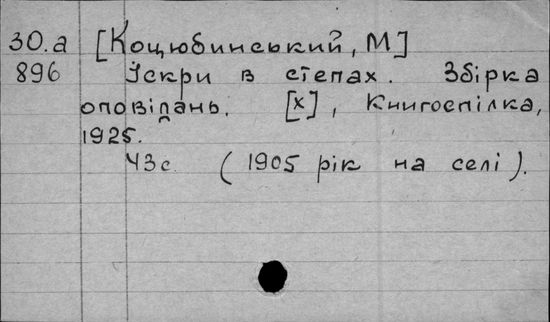 30.а [Коцюбинський, М]
896 Іскри в степах. Збірка
оповідань. [х], Книгоспілка,
1925.
43с. (1905 рік на селі).